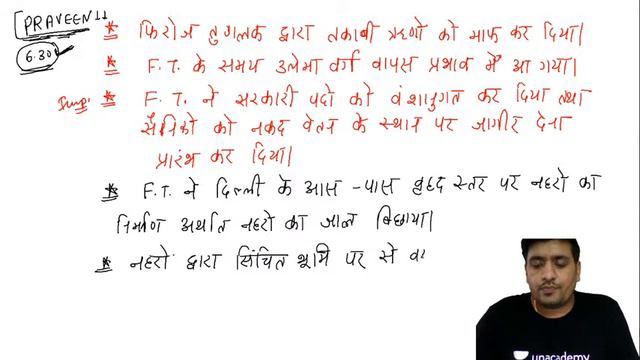 PRAVEEN11
6.30
* फिरोज तुगलक द्वारा तकावी ऋणो को माफ कर दिया।
* F.T. के समय उलेमा वर्ग वापस प्रभाव में आ गया।
Imp. * F.T. ने सरकारी पदो को वंशानुगत कर दिया तथा
सैनिको को नकद वेतन के स्थान पर जागीर देना
प्रारंभ कर दिया।
* F.T. ने दिल्ली के आस-पास वृहद स्तर पर नहरो का
निर्माण अर्थात नहरो का जाल बिछाया।
* नहरो द्वारा सिंचित भूमि पर से
unacademy